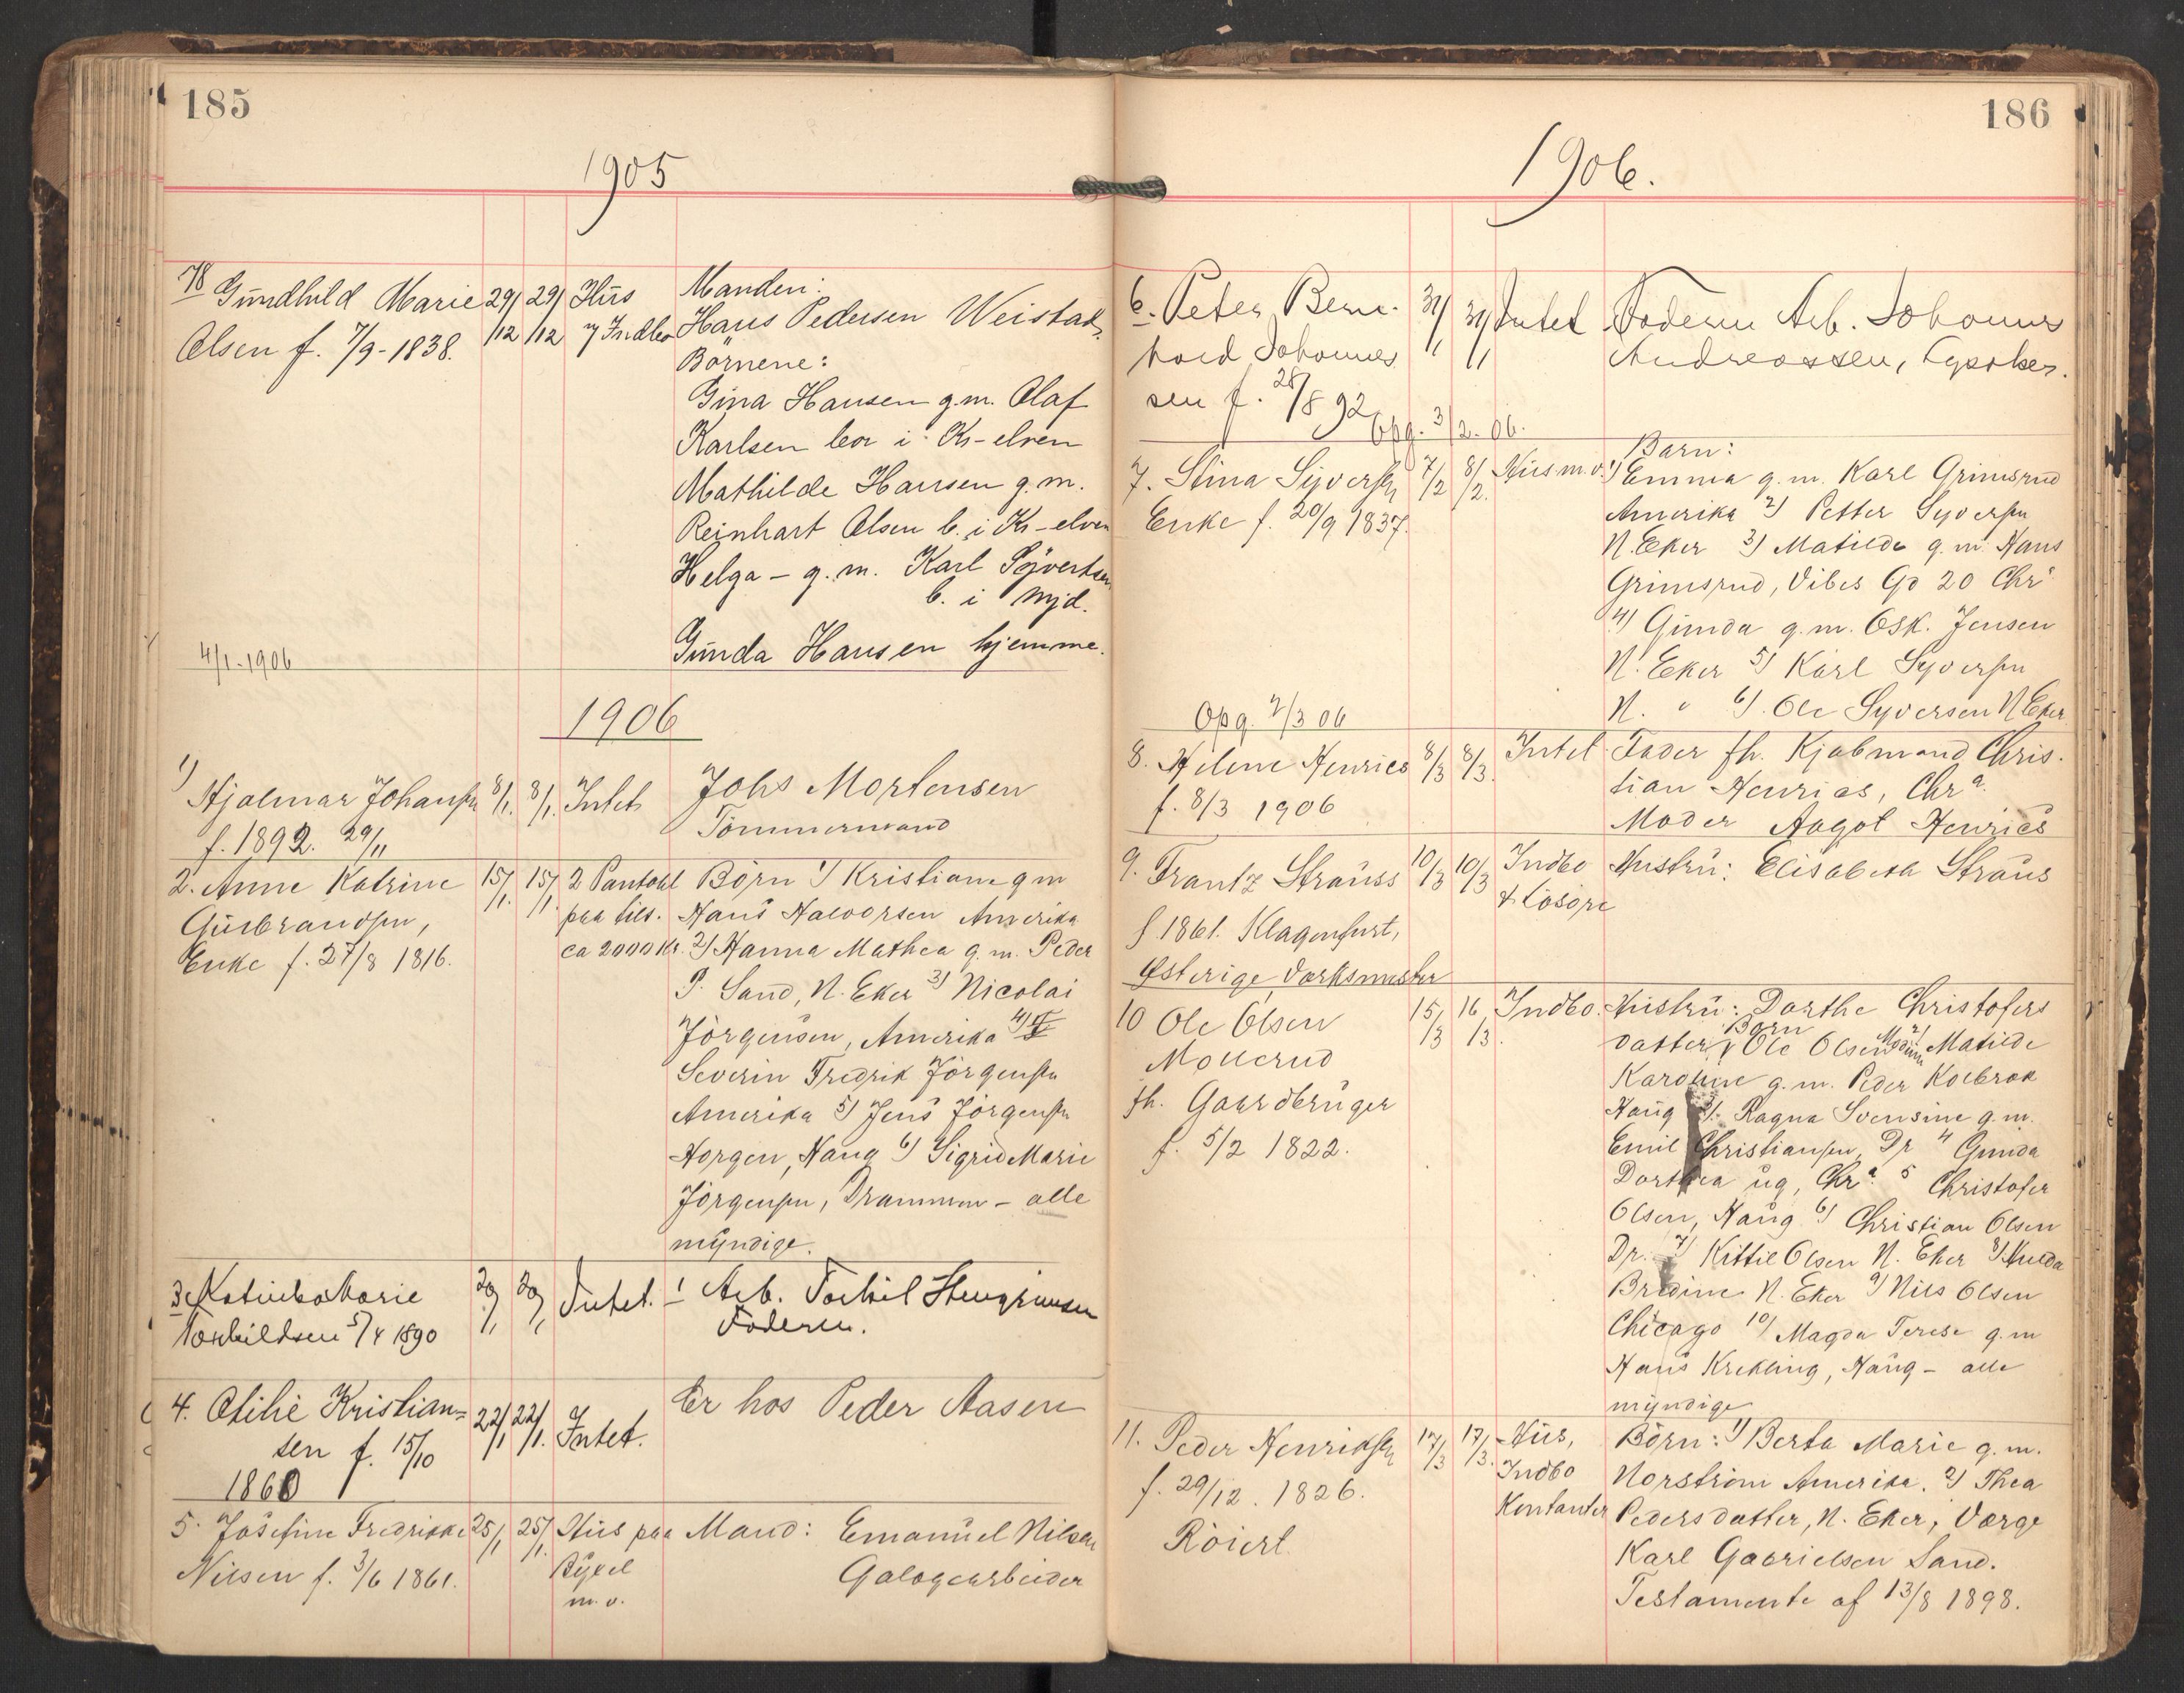 185
1905
78 Gundhild Marie 29/12 29/12 Hus Manden:
Olsen f. 7/9-1838. og Indbo Hans Pedersen Weistad,
Börnene:
Gina Hansen g.m. Olaf
Karlsen bor i Kr-elven
Mathilde Hansen g.m.
Reinhart Olsen b. i Kr-elven
Helga - g. m. Karl Syvertsen
b. i Mjd.
Gunda Hansen hjemme.
4/1-1906
1906
1) Hjalmar Johansen 8/1. 8/1. Intet Johs Mortensen
f. 1892. 29/11 Tömmermand
2. Anne Katrine 15/1. 15/1. 2 Pantobl Börn 1) Kristiane g m
Gulbrandsen, paa tils. Hans Halvorsen Amerika
Enke f. 27/8 1816. ca 2000 Kr. 2) Hanna Mathea g. m. Peder
P. Sand, N. Eker 3) Nicolai
Jörgensen, Amerika 4)
Severin Fredrik Jörgensen
Amerika 5) Jens Jörgensen
Horgen, Haug 6) Sigrid Marie
Jörgensen, Drammen - alle
myndige.
3. Marie 20/1 20/1 Intet. Arb. Torkil Stengrimsen
Torkildsen 5/4 1890 Faderen.
4. Otilie Kristian= 22/1 22/1. Intet. Er hos Peder Aasen
sen f. 15/10
1860
5. Josefine Fredrikke 25/1 25/1. Hus paa Mand: Emanuel Nilsen
Nilsen f. 3/6 1861. Bygel Galogearbeider
m. v.
186
1906.
6. Peter Bern- 31/1 31/1 Intet Faderen Arb. Johannes
hard Johannes Andreassen,
sen f. 28/8 92
Opg. 3/2-06.
7. Stina Syversen 7/2 8/2. Hus m.v. Barn:
Enke f. 20/9 1837. 1) Emma g. m. Karl Grimsrud
Amerika 2) Petter Syversen
N. Eker 3) Matilde g. m. Hans
Grimsrud, Vibes Gd 20 Chra
4) Gunda g. m. Osk. Jensen
N. Eker 5) Karl Syversen
N. " 6) Ole Syversen N Eker
Opg. 2/3 06
8. Helene Henrics 8/3 8/3. Intet Fader fh. Kjøbmand Chris-
f. 8/3 1906 tian Henrics, Chra.
Moder Aagot Henrics
9. Frantz Strauss 10/3 10/3 Indbo Hustru: Elisabeth Straus
& Løsøre
f 1861. Klagenfurt,
Østerige, Værksmester
10 Ole Olsen 15/3 16/3. Indbo. Hustru: Dorthe Christofers
Mollerud datter, Børn 1) Ole Olsen Modum 2) Matilde
fh. Gaardbruger Karoline g. m. Peder Kolbrek
f. 5/2 1822. Haug 3) Ragna Svensine g. m.
Emil Christiansen, Dr 4 Gunda
Dorthea ug, Chra. 5 Christofer
Olsen, Haug 6) Christian Olsen
Dr. 7) Kittil Olsen N. Eker 8) Hulda
Bredine N. Eker 9) Nils Olsen
Chicago 10) Magda Terese g. m
Hans Krekling, Haug - alle
myndige
11. Peder Henriksen 17/3 17/3. Hus, Börn: 1) Berta Marie g. m.
f. 29/12. 1826. Indbo Norström Amerika. 2) Thea
Kontanter Pedersdatter, N. Eker; Værge
Röiert. Karl Gabrielsen Sand.
Testamente af 13/8 1898.